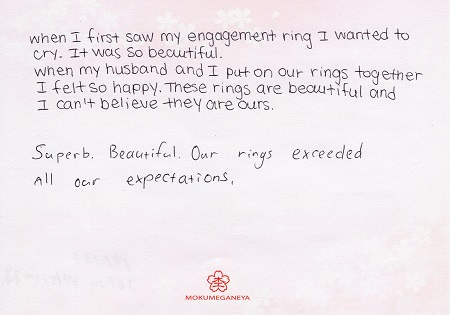 when I first saw my engagement ring I wanted to
cry. It was so beautiful.
when my husband and I put on our rings together
I felt so happy. These rings are beautiful and
I can't believe they are ours.
Superb. Beautiful. Our rings exceeded
All our expectations.
MOKUMEGANEYA